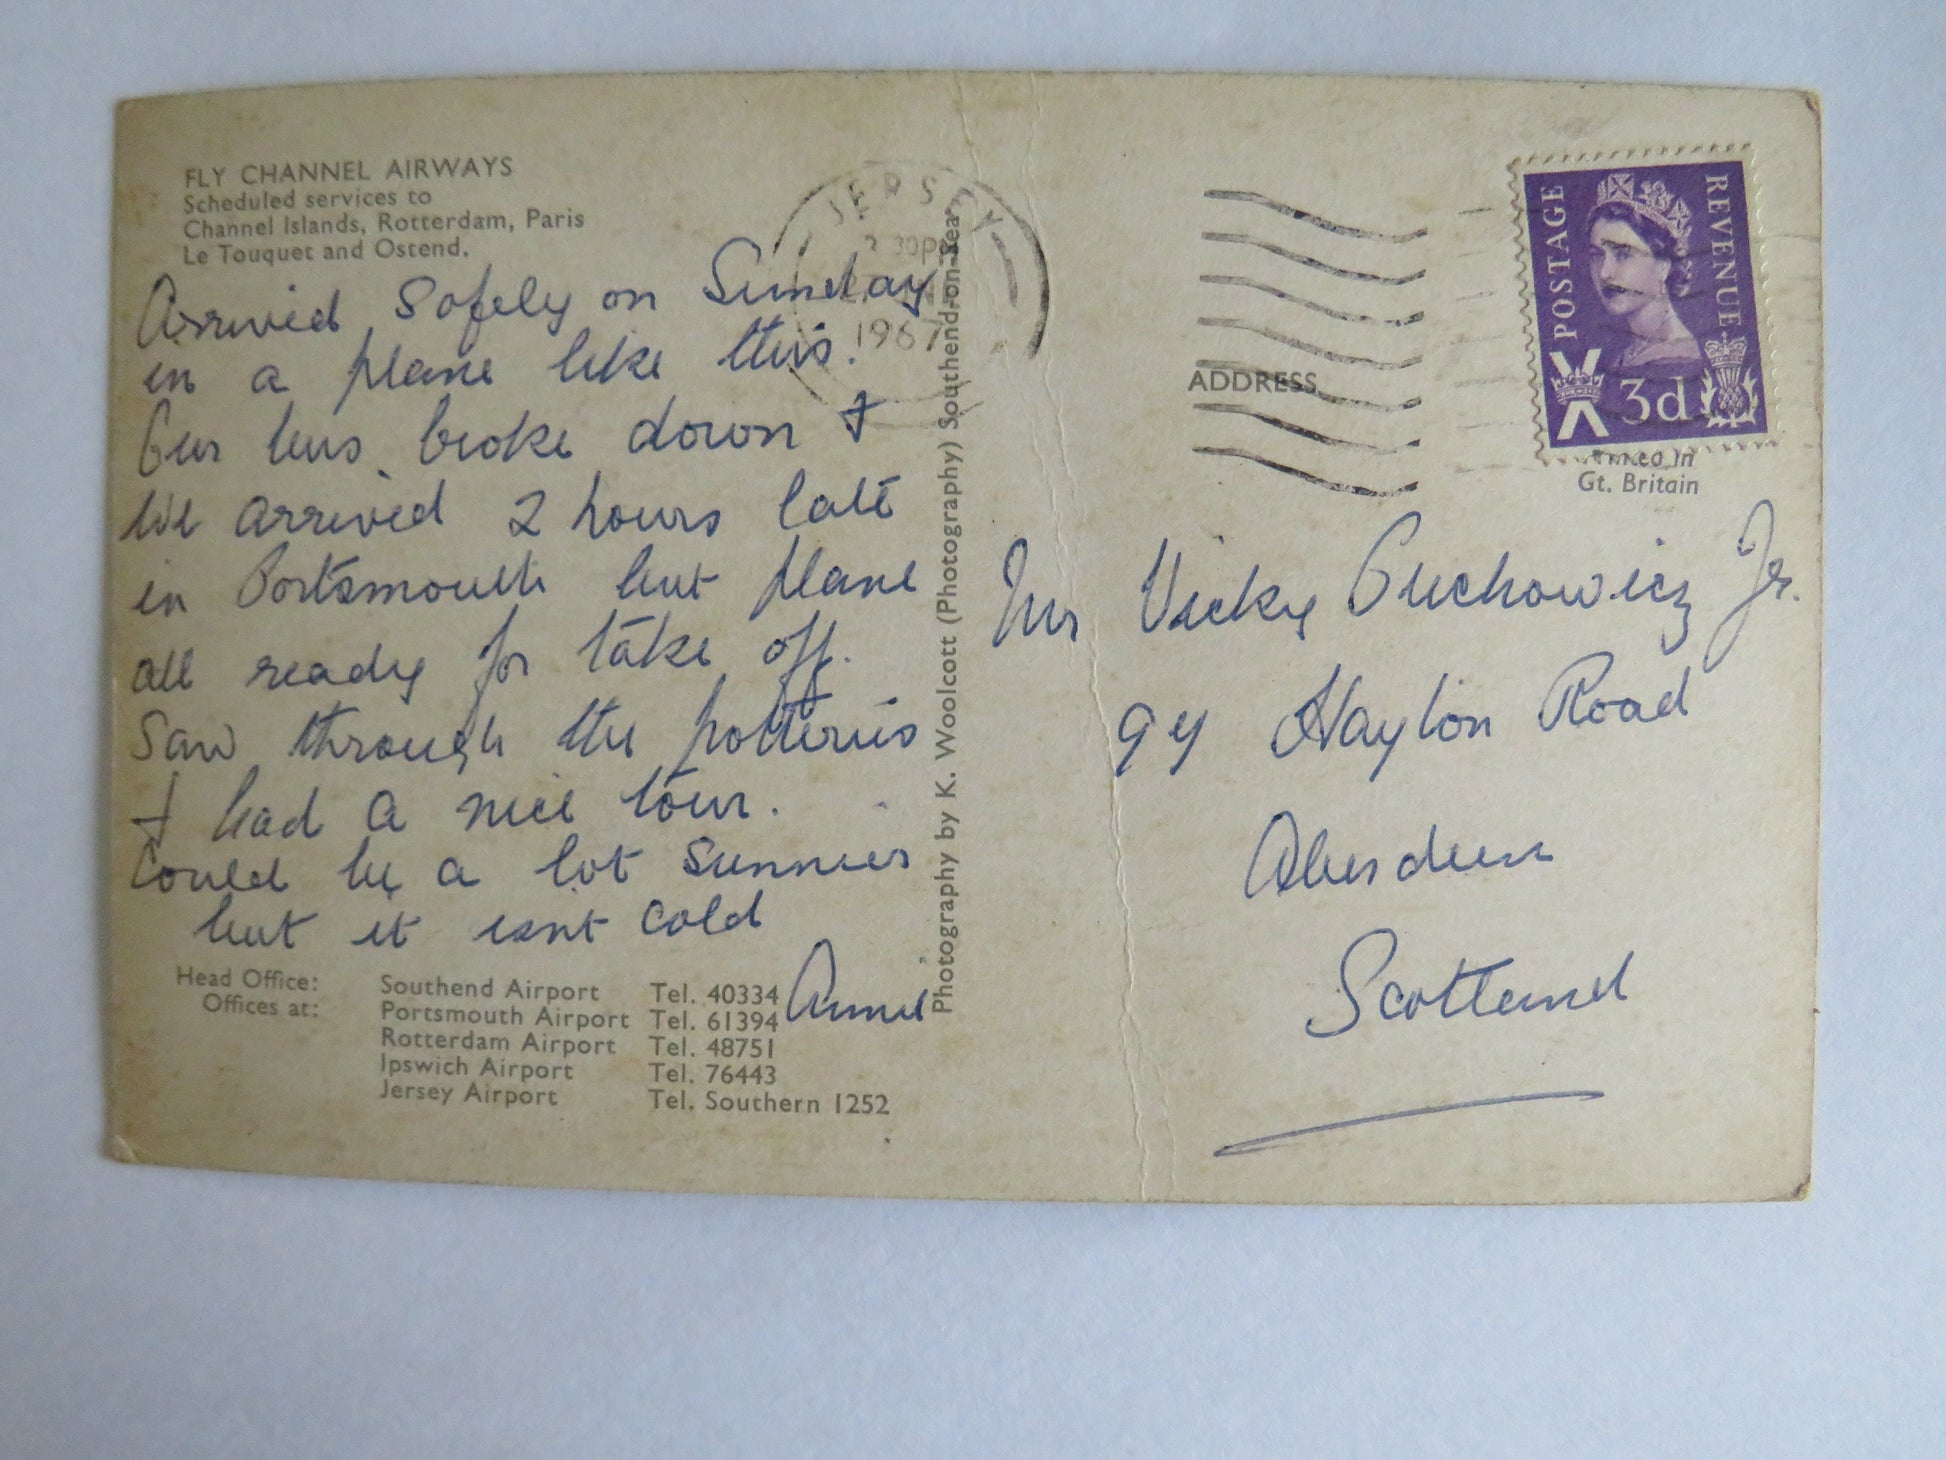 FLY CHANNEL AIRWAYS
Scheduled services to
Channel Islands, Rotterdam, Paris
Le Touquet and Ostend.
Arrived Safely on Sunday
in a plane like this.
Our bus broke down &
We arrived 2 hours late
in Portsmouth but plane
all ready for take off.
Saw through the potteries
& had a nice tour.
Could be a lot sunnier
but it isnt cold
Head Office: Southend Airport Tel. 40334
Offices at: Portsmouth Airport Tel. 61394
Rotterdam Airport Tel. 48751
Ipswich Airport Tel. 76443
Jersey Airport Tel. Southern 1252
Photography by K. Woolcott (Photography) Southend-on-Sea
JERSEY
30PM
1967
POSTAGE
REVENUE
3d
ADDRESS
Gt. Britain
Mr Vicky Jr.
Road
Aberdeen
Scotland